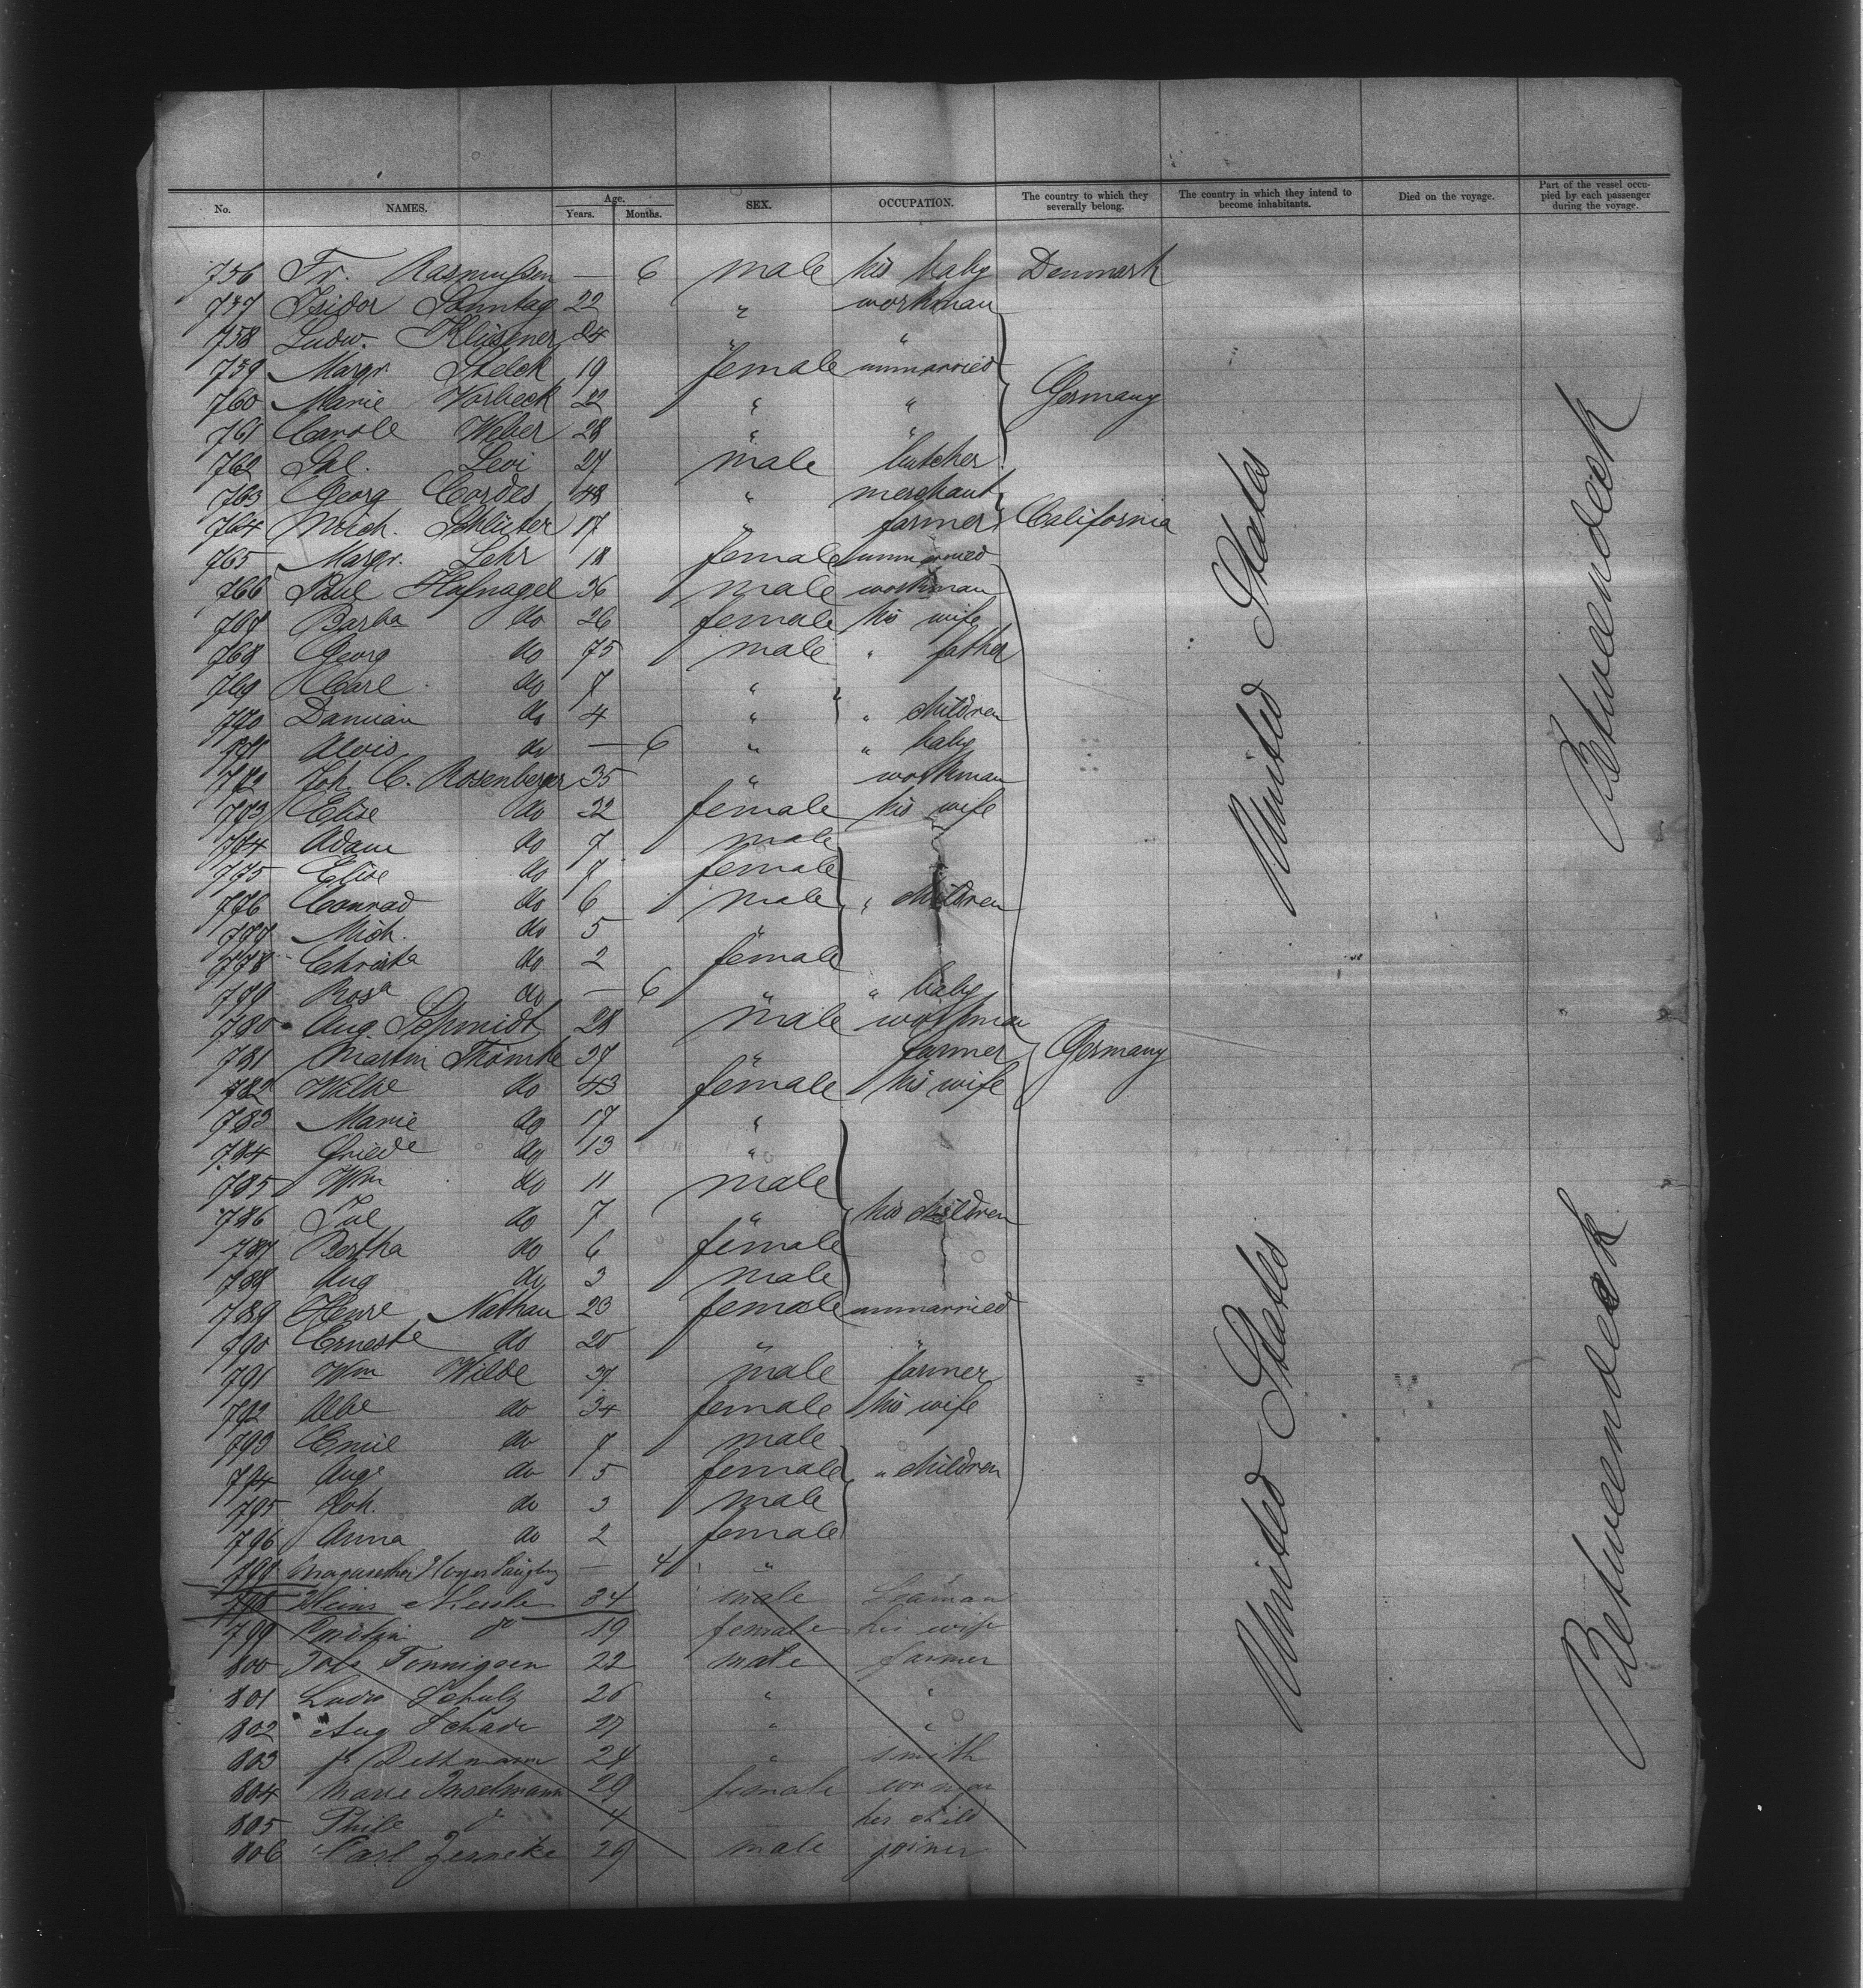 No. NAMES. Age. Years. Months. SEX. OCCUPATION. The country to which they severally belong. The country in which they intend to become inhabitants. Died on the voyage. Part of the vessel occupied by each passenger during the voyage.
756 Fr. Rasmussen — 6 male his baby Denmark
757 Isidor Sonntag 22 " workman
758 Ludw. Klüsener 24 " "
759 Margr. Stelck 19 female unmarried
760 Marie Vorbeck 22 " " Germany
761 Carole Weber 28 " "
762 Sal. Levi 27 male butcher
763 Georg Cordes 48 " merchant
764 Mich. Schlüter 17 " farmer California
765 Margr. Lehr 18 female unmarried
766 Paul Hufnagel 36 male workman
767 Barba do 26 female his wife
768 Georg do 75 male " father
769 Carl do 7 "
770 Damian do 4 " " children
771 Alois do — 6 " " baby
772 Joh. C. Rosenberger 35 " workman
773 Elise do 32 female his wife
774 Adam do 7 male
775 Elise do 7 female
776 Conrad do 6 male " children
777 Mich. do 5 "
778 Christa do 2 female
779 Rosa do — 6 " " baby
780 Aug. Schmidt 28 male workman
781 Martin Thömke 37 " farmer Germany
782 Wilhe do 43 female his wife
783 Marie do 17 "
784 Friede do 13 "
785 Wm do 11 male
786 Jul do 7 " his children
787 Bertha do 6 female
788 Aug do 3 male
789 Henre Nathan 23 female unmarried
790 Erneste do 20 " "
791 Wm Wilde 37 male farmer
792 Albe do 34 female his wife
793 Emil do 7 male
794 Auge do 5 female " children
795 Joh. do 3 male
796 Anna do 2 female
797 Margarethe — 4 "
798 Heinr 34 male Seaman
799 do 19 female his wife
800 Tönnigsen 22 male farmer
801 Ludw Schulz 26 " "
802 Aug Schade 27 " "
803 Dettmann 24 " smith
804 Marie Inselmann 29 female woman
805 Phile do 4 her child
806 Carl Jenneke 29 male joiner
United States
United States
Betweendeck
Betweendeck